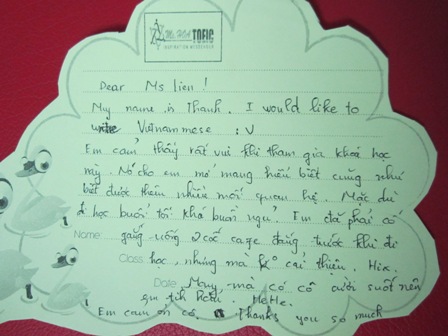 Ms. Hoa TOEIC
INSPIRATION MESSENGER
Dear Ms Lien !
My name is Thanh. I would like to
write Vietnammese : V
Em cảm thấy rất vui khi tham gia khoá học
này. Nó cho em mở mang hiểu biết cũng như
biết được thêm nhiều mối quan hệ. Mặc dù
đi học buổi tối khá buồn ngủ. Em đã phải cố
Name: gắng uống 2 cốc cafe đắng trước khi đi
Class học, nhưng mà ko cải thiện. Hix.
Date May mà có cô cười suốt nên
em tích
HeHe.
Em cảm ơn cô. Thanks you so much